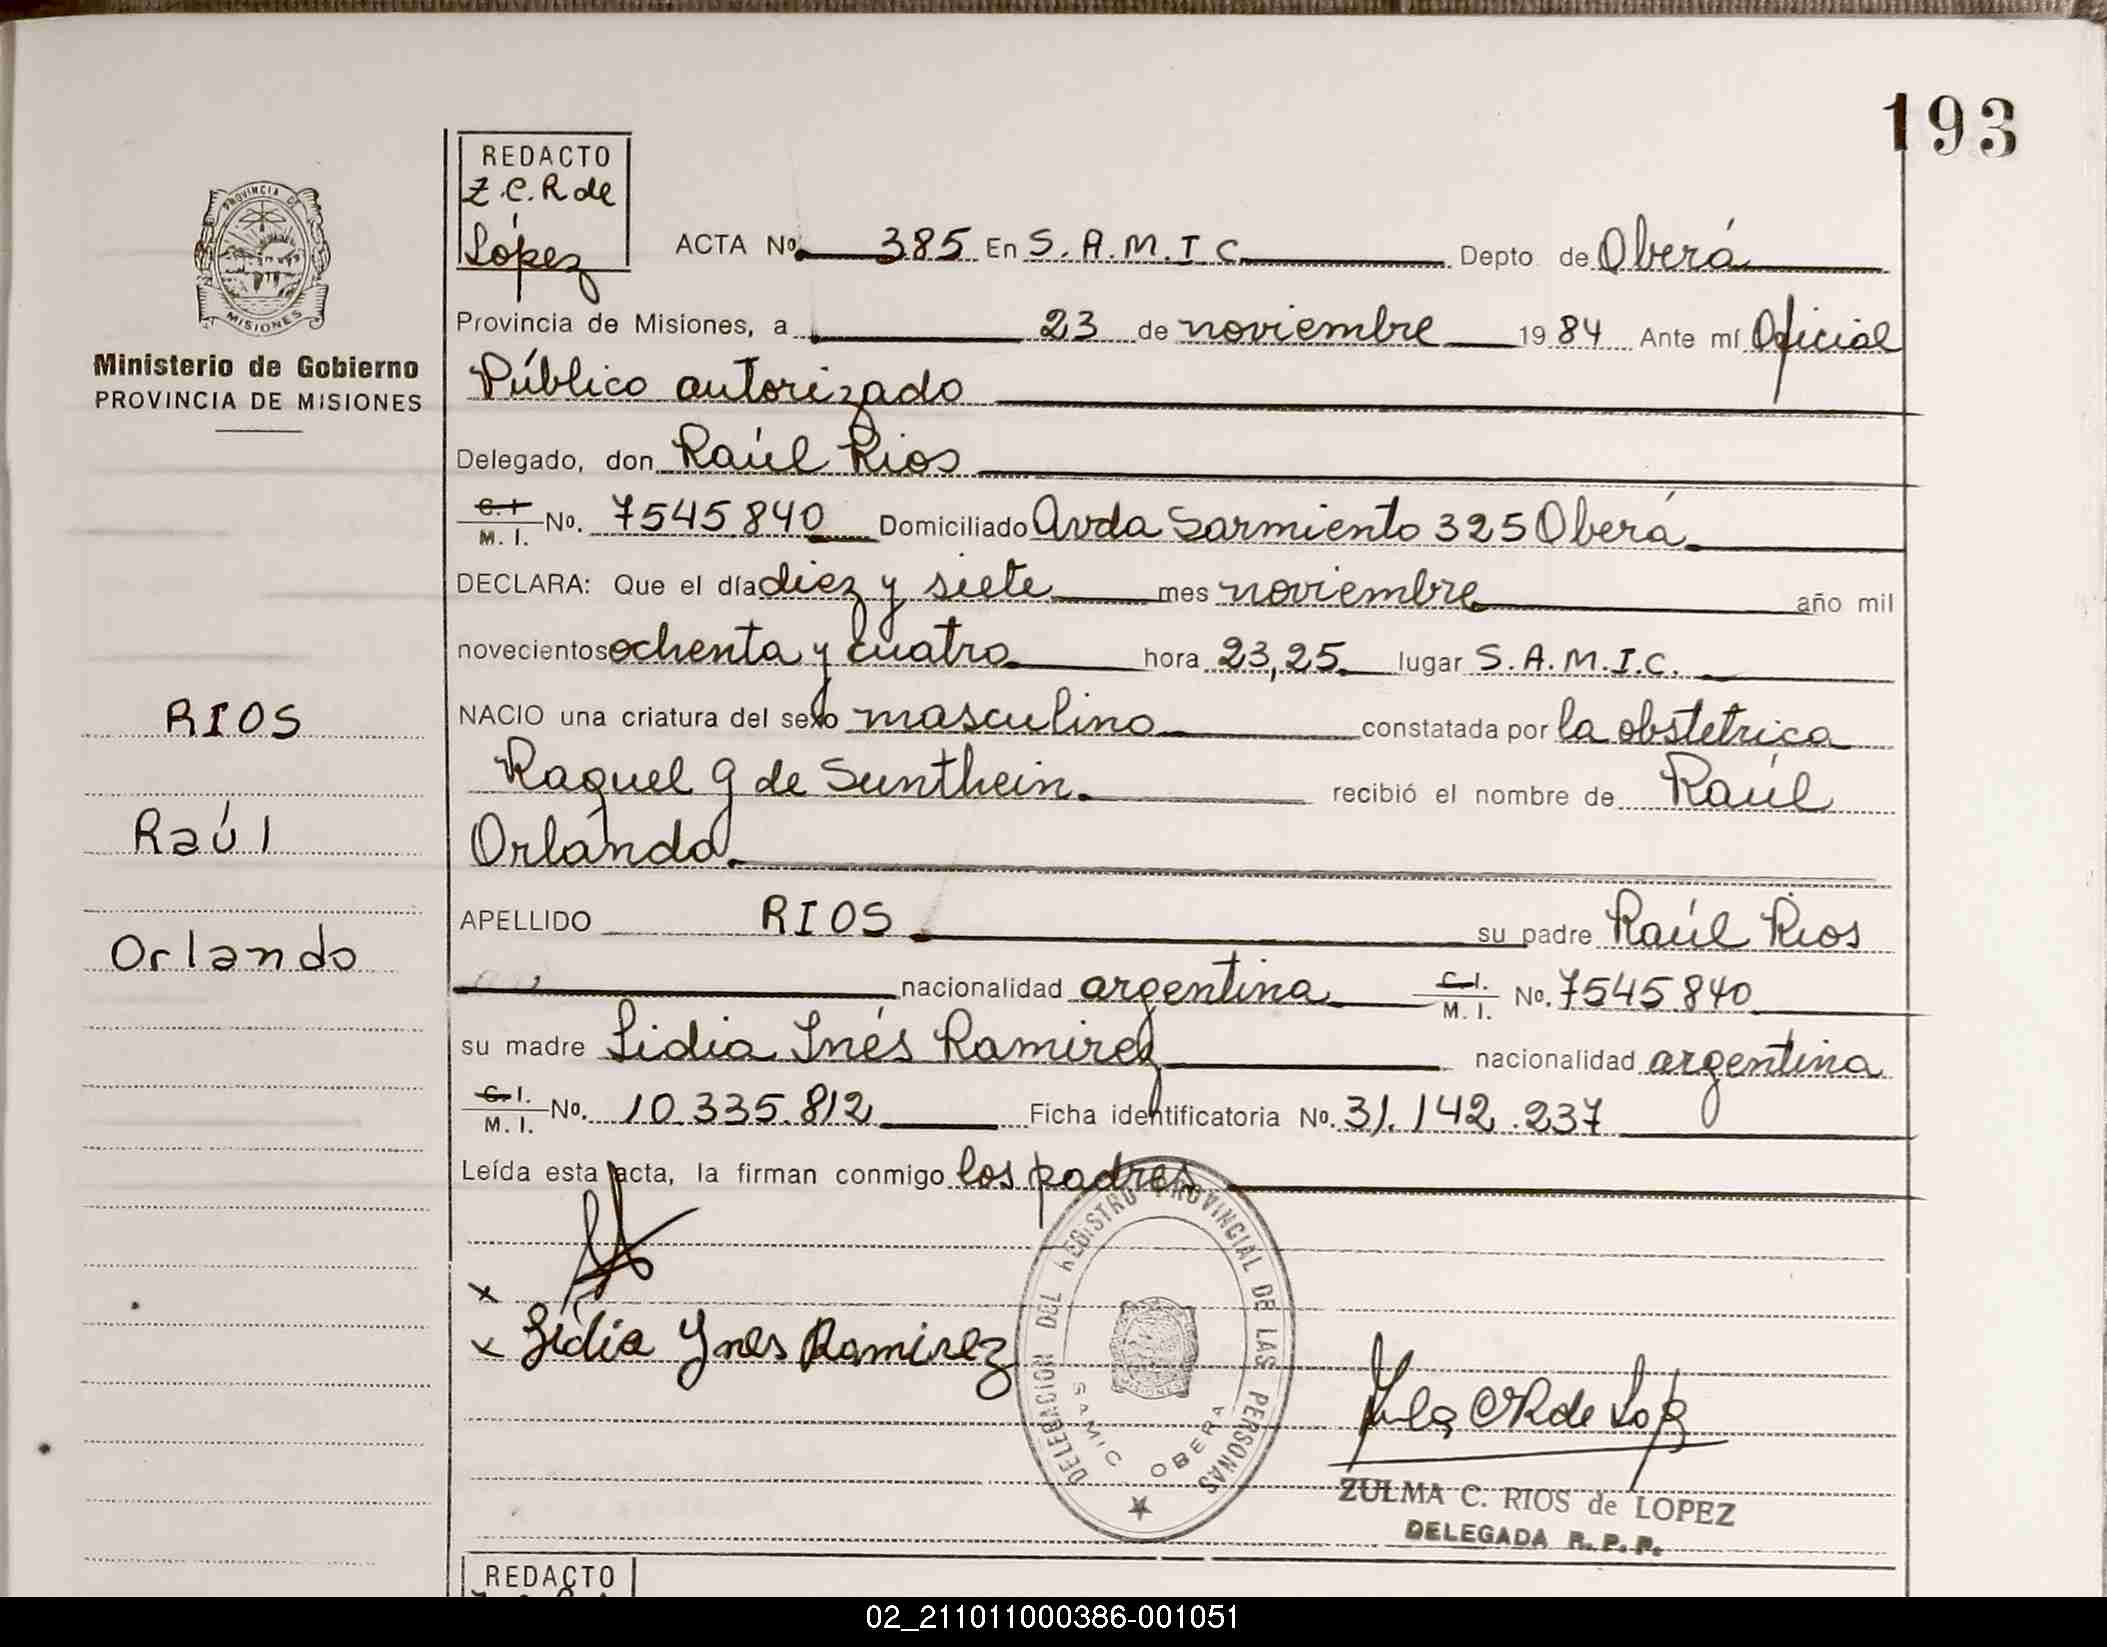 193
REDACTO
Z.C.R de
López
PROVINCIA DE
MISIONES
Ministerio de Gobierno
PROVINCIA DE MISIONES
ACTA No 385 En S.A.M.I.C. Depto de Oberá
Provincia de Misiones, a 23 de noviembre 1984 Ante mí Oficial
Público autorizado
Delegado, don Raúl Rios
C.I. M.I. No. 7545.840 Domiciliado Avda Sarmiento 325 Oberá
DECLARA: Que el día diez y siete mes noviembre año mil
novecientos ochenta y cuatro hora 23,25 lugar S.A.M.I.C.
NACIO una criatura del sexo masculino constatada por la obstetrica
Raquel G de Sunthein. recibió el nombre de Raúl
Orlando
APELLIDO RIOS su padre Raúl Rios
nacionalidad argentina C.I. M.I. No. 7545.840
su madre Lidia Inés Ramirez nacionalidad argentina
C.I. M.I. No. 10.335.812 Ficha identificatoria No. 31.142.237
Leída esta acta, la firman conmigo los padres
RIOS
Raúl
Orlando
x
x Lidia Ynes Ramirez
DELEGACION DEL REGISTRO PROVINCIAL DE LAS PERSONAS
SAMIC OBERA
MISIONES
ZULMA C. RIOS de LOPEZ
DELEGADA R.P.P.
REDACTO
02_211011000386-001051